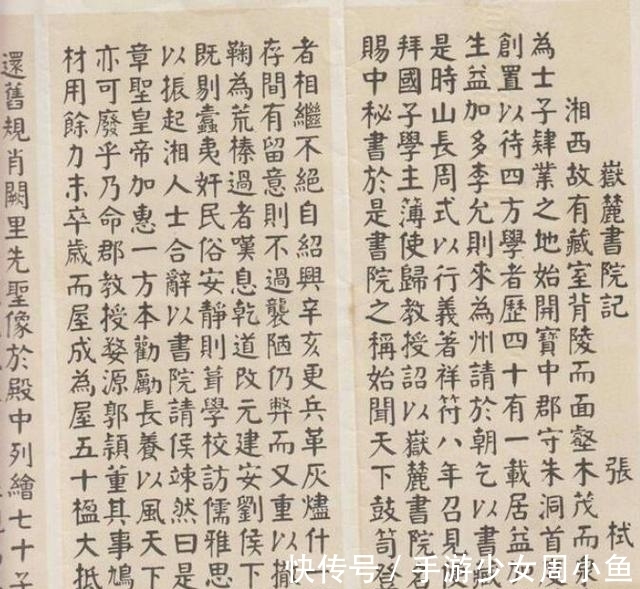 嶽麓書院記 張栻
湘西故有藏室背陵而面壑木茂而
為士子肄業之地始開寶中郡守朱洞首
創置以待四方學者歷四十有一載居益
生益加多李允則來為州請於朝乞以書藏
是時山長周式以行義著祥符八年召見便
拜國子學主簿使歸教授詔以嶽麓書院名
賜中秘書於是書院之稱始聞天下鼓笥登
者相繼不絕自紹興辛亥更兵革灰燼什一
存間有留意則不過襲陋仍弊而又重以撤
鞠為荒榛過者嘆息乾道改元建安劉侯下
既剔蠹夷奸民俗安靜則葺學校訪儒雅思
以振起湘人士合辭以書院請侯竦然曰是
章聖皇帝加惠一方本勸勵長養以風天下
亦可廢乎乃命郡教授婺源郭穎董其事鳩
材用餘力未卒歲而屋成為屋五十楹大抵
還舊規肖闕里先聖像於殿中列繪七十子
快传号/手游少女周小鱼